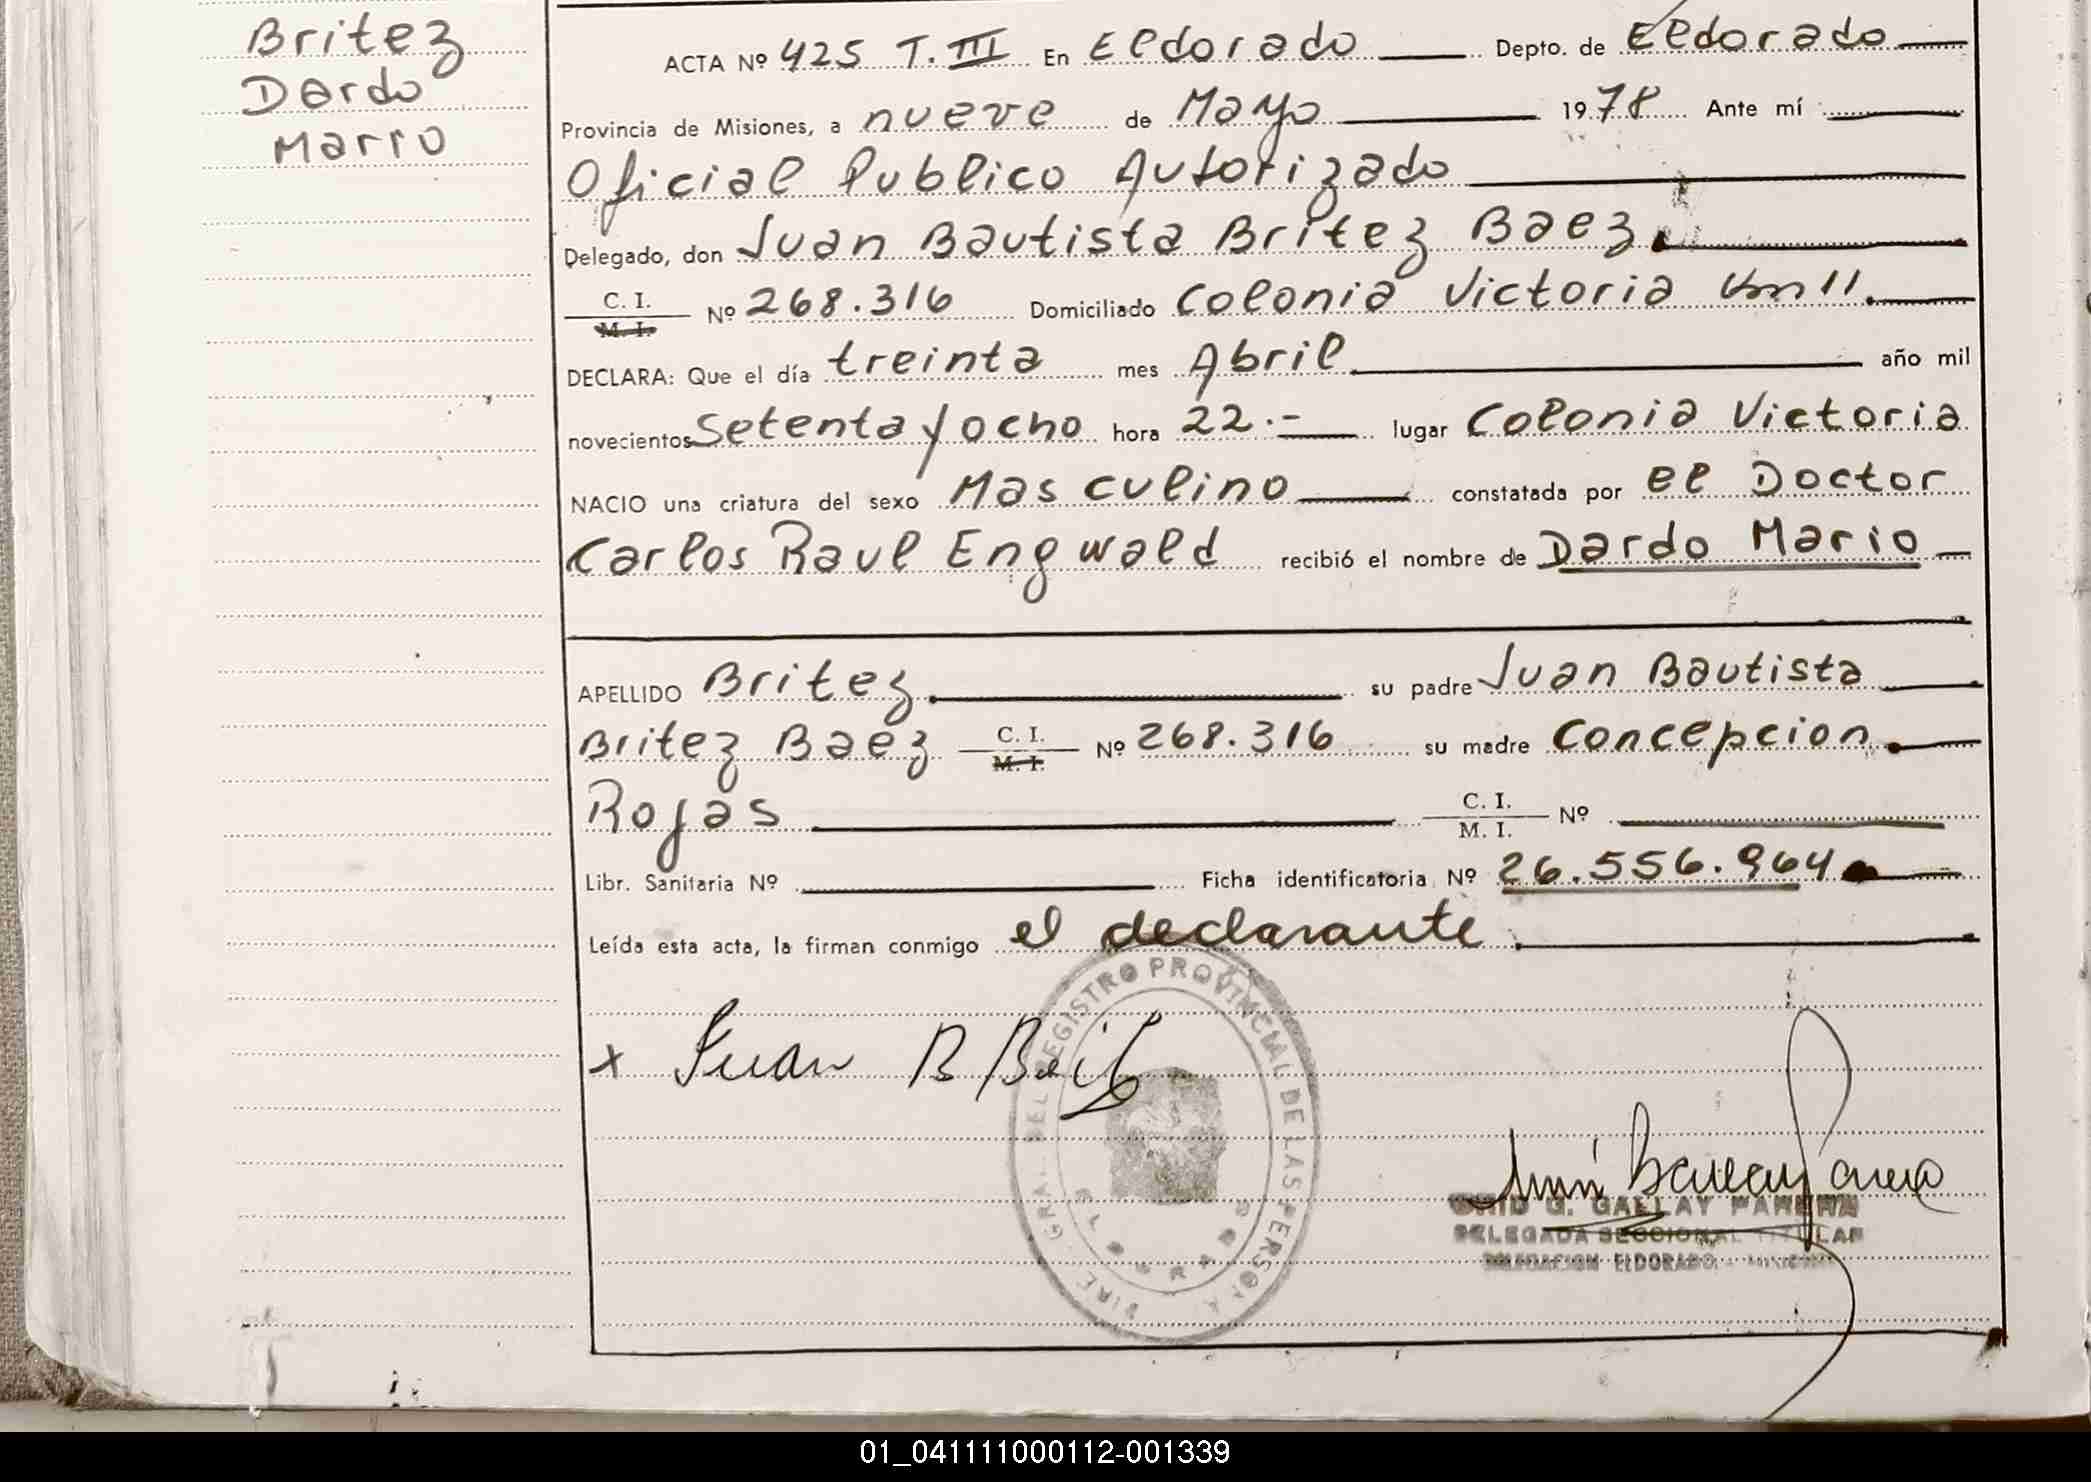 Britez
Dardo
Mario
ACTA Nº 425 T. III En Eldorado Depto. de Eldorado
Provincia de Misiones, a nueve de Mayo 1978 Ante mí
Oficial Publico Autorizado
Delegado, don Juan Bautista Britez Baez.
C. I.
M. I.
Nº 268.316 Domiciliado Colonia Victoria Km 11.
DECLARA: Que el día treinta mes Abril año mil
novecientos setenta y ocho hora 22.- lugar Colonia Victoria
NACIO una criatura del sexo Masculino constatada por el Doctor
Carlos Raul Engwald recibió el nombre de Dardo Mario
APELLIDO Britez su padre Juan Bautista
Britez Baez C. I. M. I. Nº 268.316 su madre Concepcion
Rojas C. I. M. I. Nº
Libr. Sanitaria Nº Ficha identificatoria Nº 26.556.964
Leída esta acta, la firman conmigo el declarante
x Juan B
DIRE. GRAL. DEL REGISTRO PROVINCIAL DE LAS PERSONA
G. GALLAY
DELEGADA SECCIONAL TITULAR
DELEGACION ELDORADO - MISIONES
01_041111000112-001339